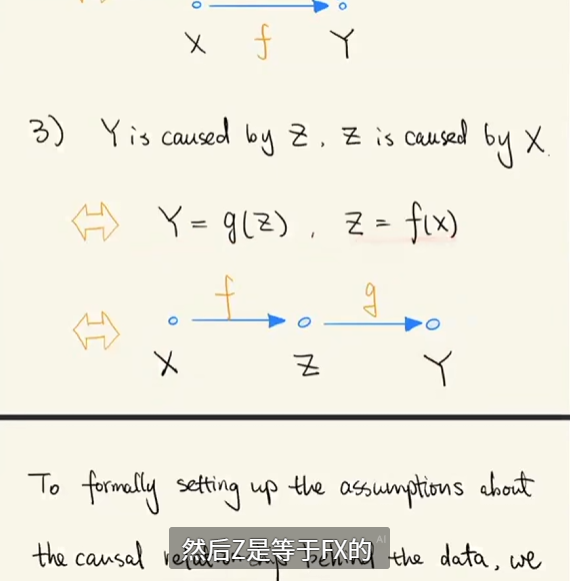 X f Y
3) Y is caused by Z, Z is caused by X.
Y = g(Z), Z = f(x)
f g
X Z Y
To formally setting up the assumptions about
the causal behind the data, we
然后Z是等于FX的 AI